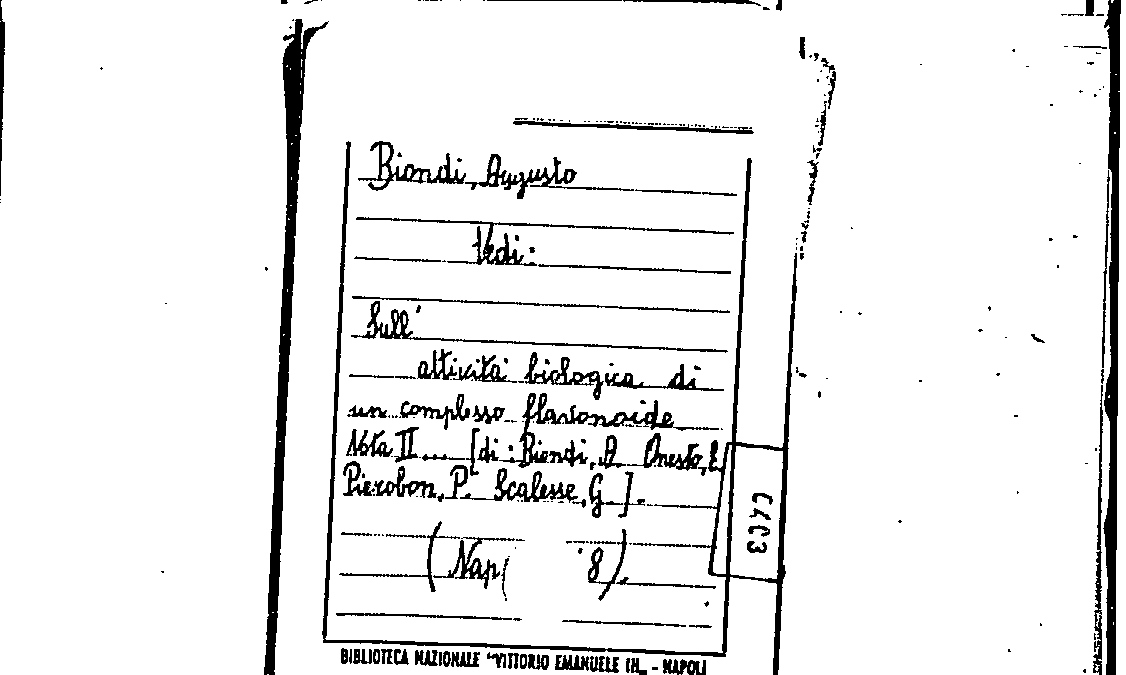 Biondi, Augusto
Vedi:
Sull'
attività biologica di
un complesso flavonoide
Nota II... [di: Biondi, A. Onesto, E.
Pierobon, P. Scalesse, G.].
(Nap 8).
BIBLIOTECA NAZIONALE "VITTORIO EMANUELE III„ - NAPOLI